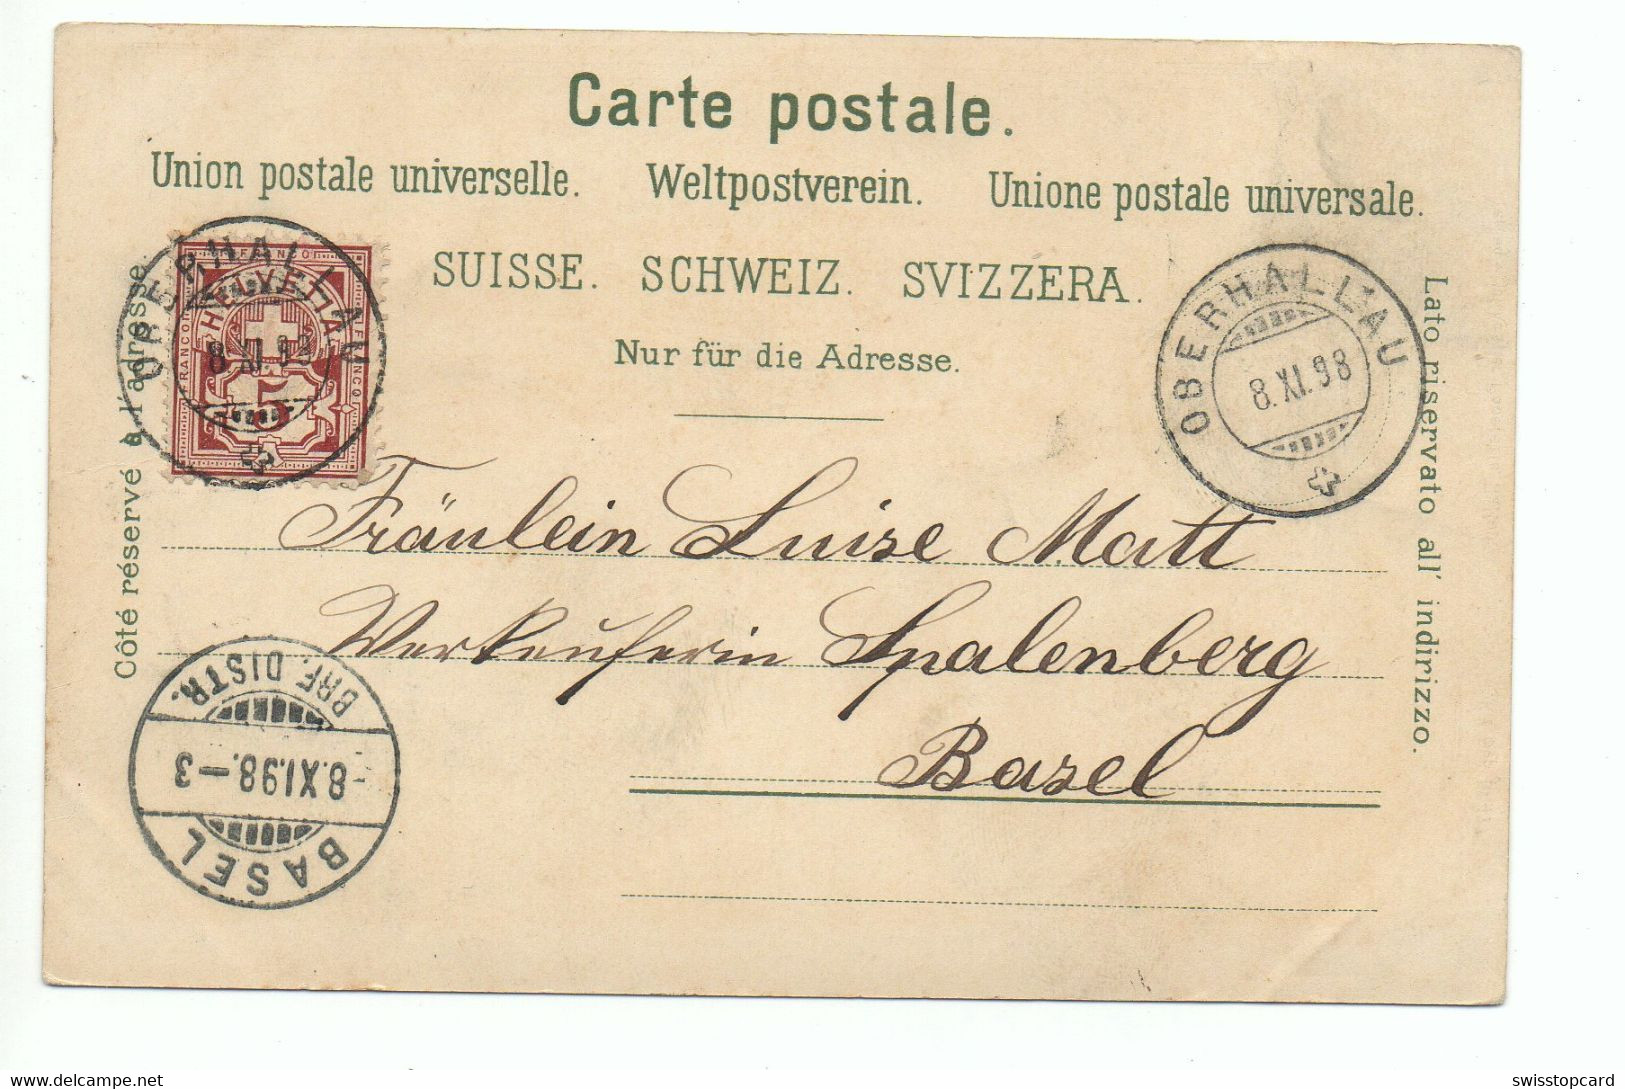 Carte postale.
Union postale universelle. Weltpostverein. Unione postale universale.
SUISSE. SCHWEIZ. SVIZZERA.
Nur für die Adresse.
Côté réservé à l'adresse.
Lato riservato all' indirizzo.
FRANCO
FRANCO
FRANCO
HELVETIA
5
OBERHALLAU
8.XI.98
OBERHALLAU
8.XI.98
Fräulein Luise Matt
Verkäuferin Spalenberg
Basel
BRF. DISTR.
8.XI.98.-3
BASEL
www.delcampe.net
swisstopcard